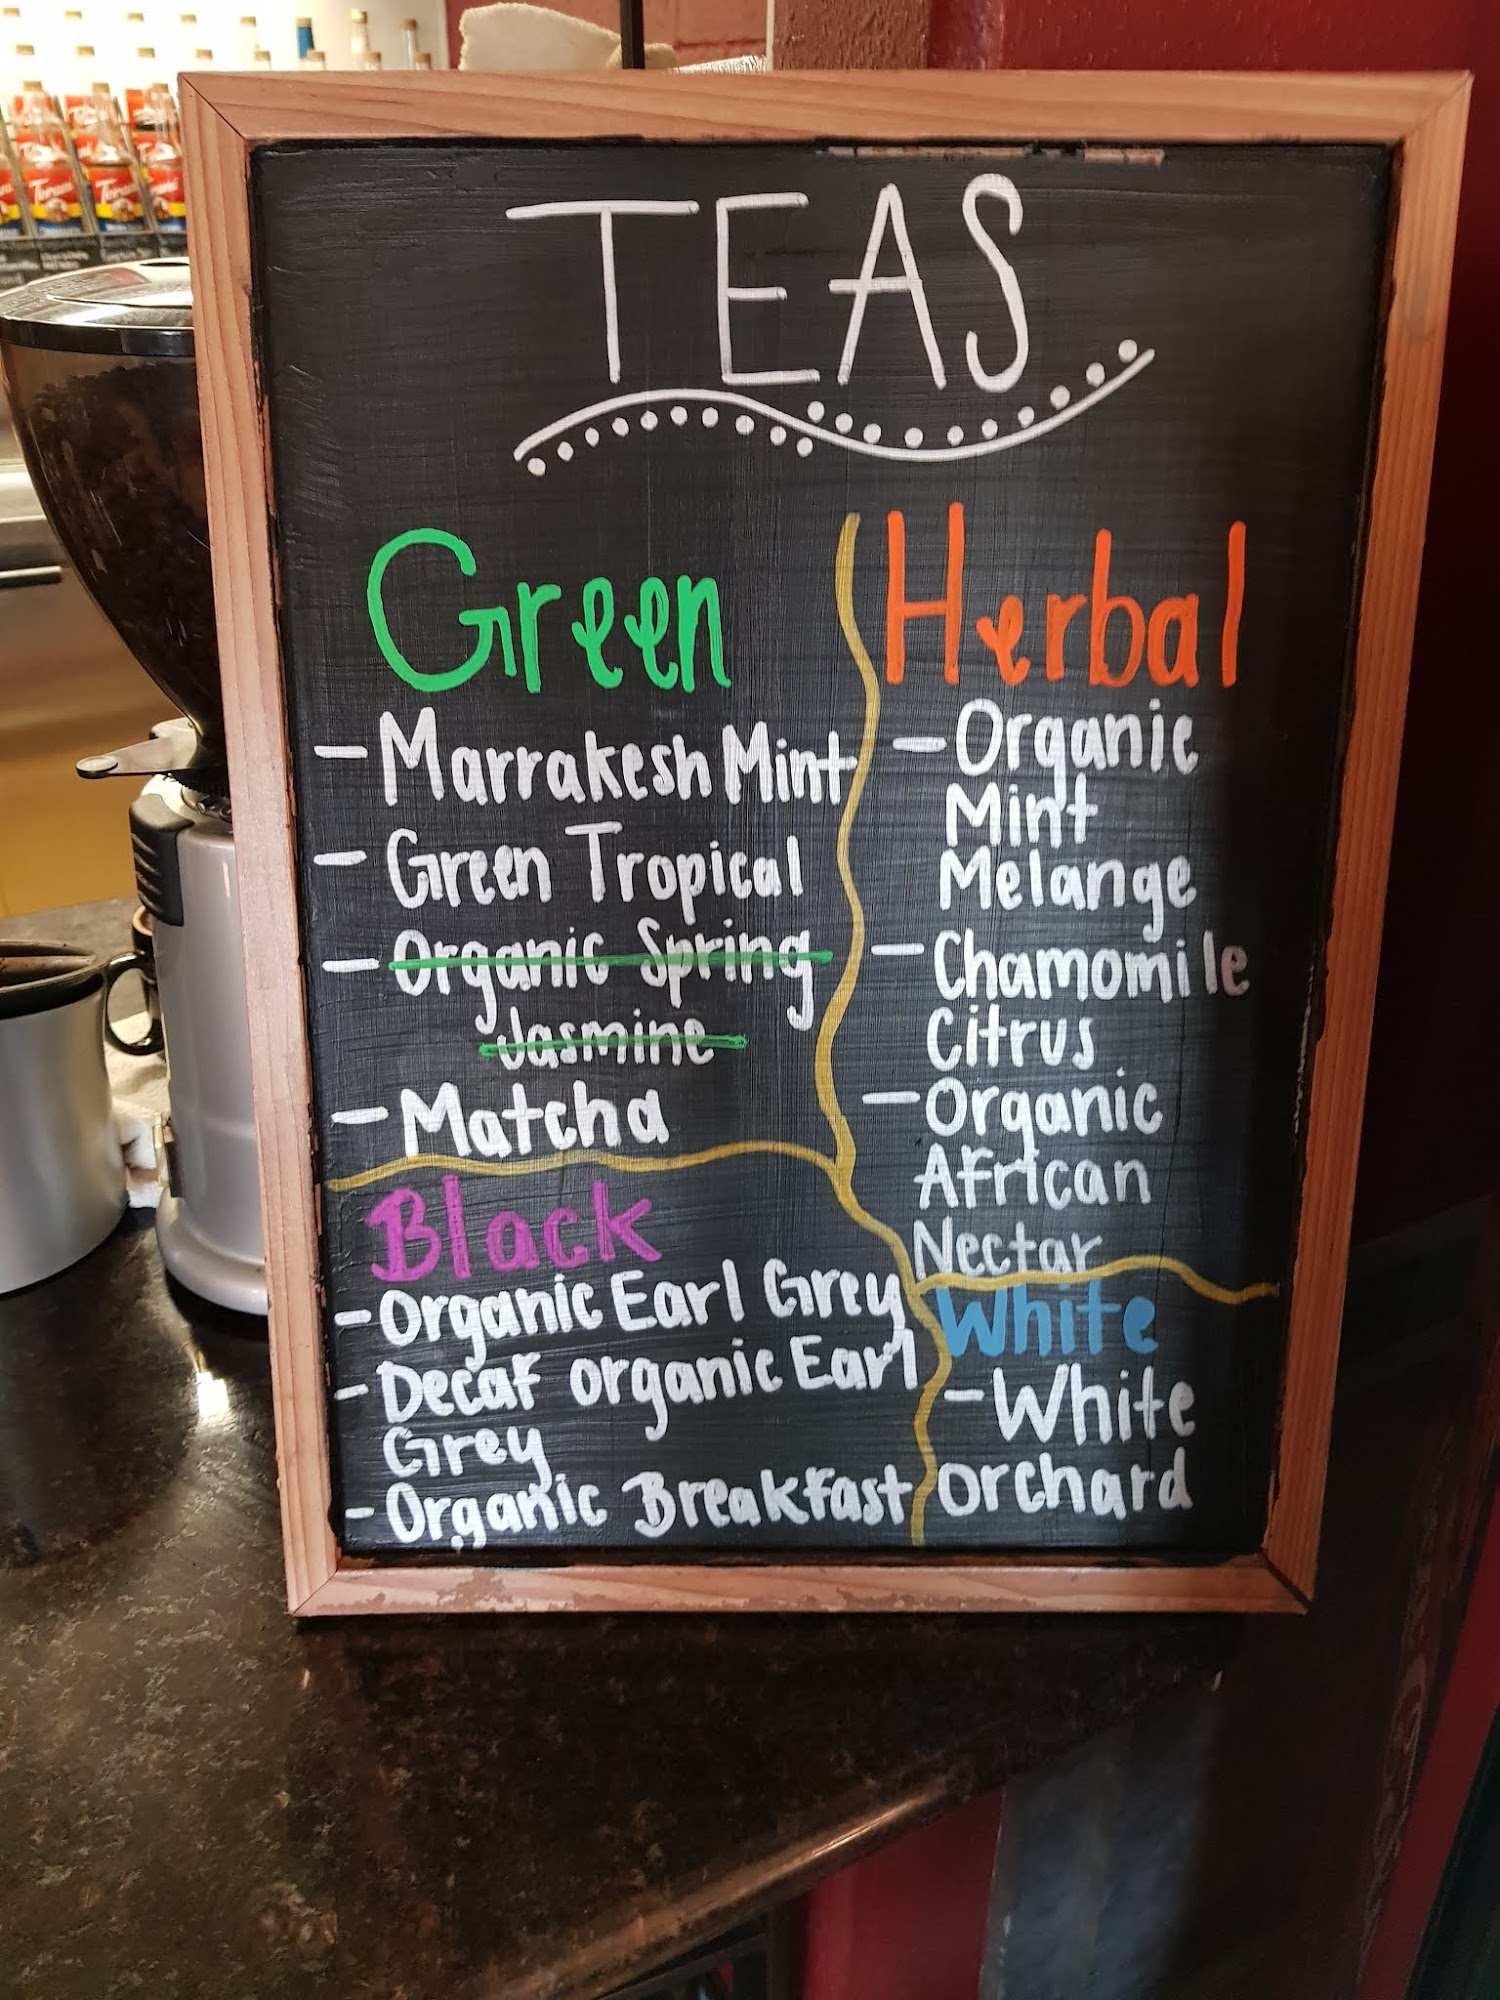 TEAS
Green
- Marrakesh Mint
- Green Tropical
- Organic Spring
Jasmine
- Matcha
Black
- Organic Earl Grey
- Decaf organic Earl
Grey
- Organic Breakfast
Herbal
- Organic
Mint
Melange
- Chamomile
Citrus
- Organic
African
Nectar
White
- White
Orchard
Torani
Torani